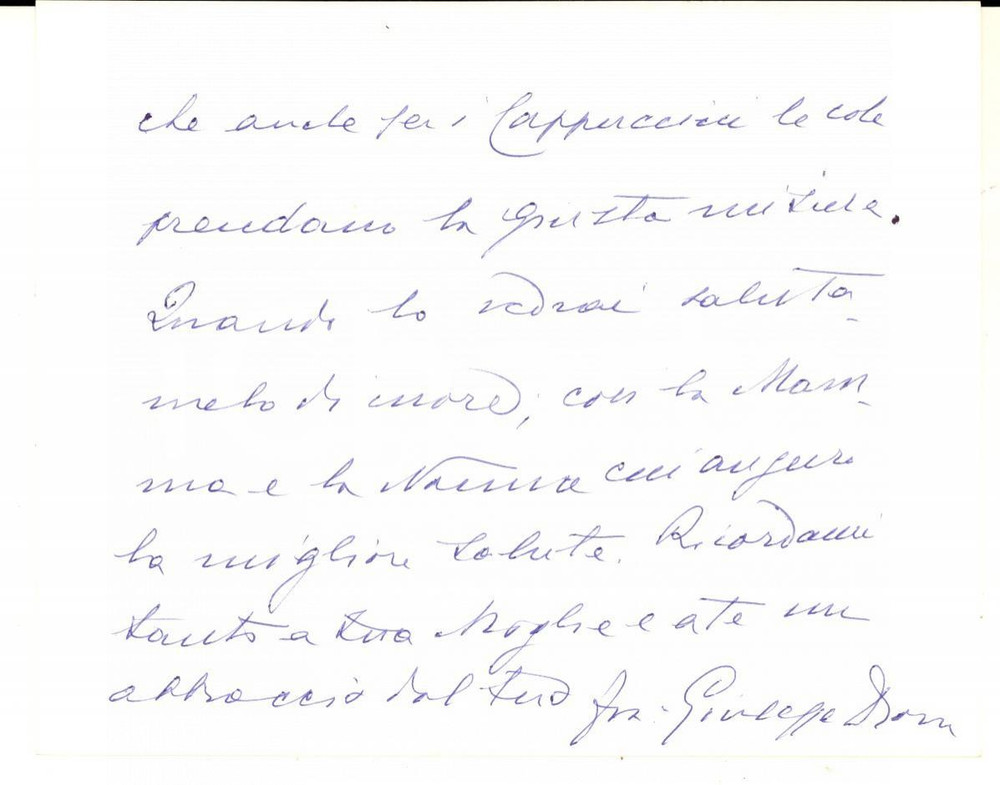 che anche per i Cappuccini le cose
prendano la giusta misura.
Quando lo vedrai saluta-
melo di cuore, con la Mam-
ma e la Nonna cui auguro
la migliore salute. Ricordami
tanto a tua Moglie e a te un
abbraccio dal tuo fra Giuseppe